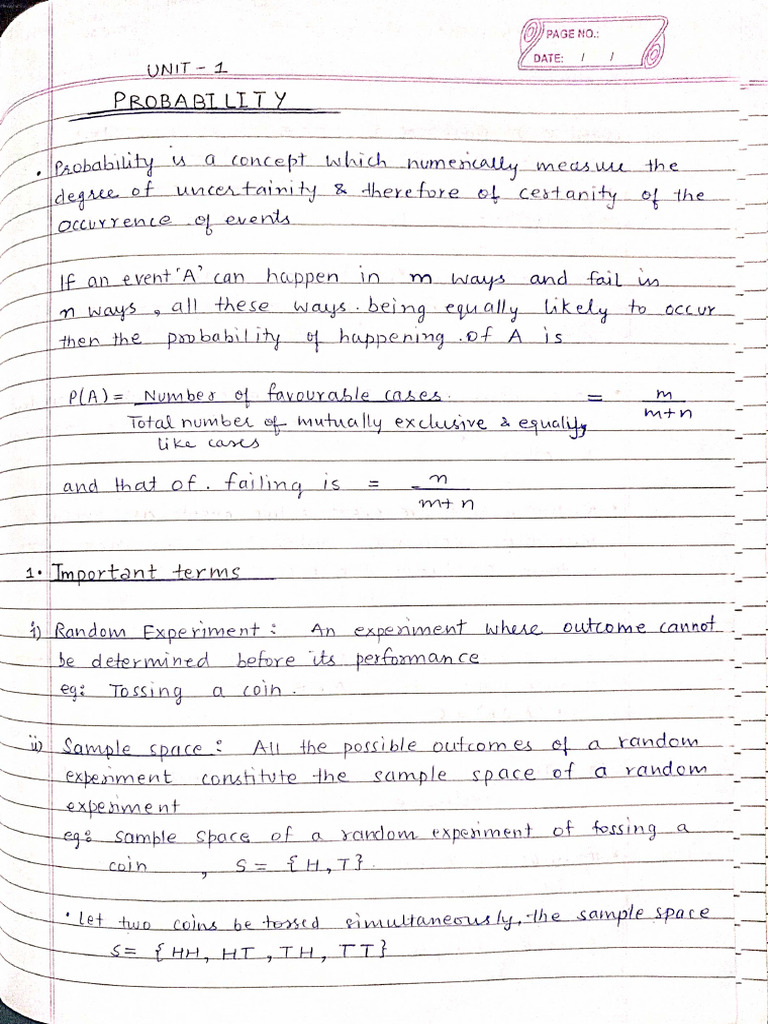 PAGE NO.:
DATE: / /
UNIT - 1
PROBABILITY
• Probability is a concept which numerically measure the
degree of uncertainity & therefore of certanity of the
occurrence of events
If an event 'A' can happen in m ways and fail in
n ways, all these ways being equally likely to occur
then the probability of happening of A is
P(A) = Number of favourable cases = m
Total number of mutually exclusive & equally m+n
like cases
and that of failing is = n
m+n
1. Important terms
i) Random Experiment: An experiment where outcome cannot
be determined before its performance
eg: Tossing a coin.
ii) Sample space: All the possible outcomes of a random
experiment constitute the sample space of a random
experiment
eg: sample space of a random experiment of tossing a
coin , S = {H,T}.
• Let two coins be tossed simultaneously, the sample space
S= {HH, HT, TH, TT}